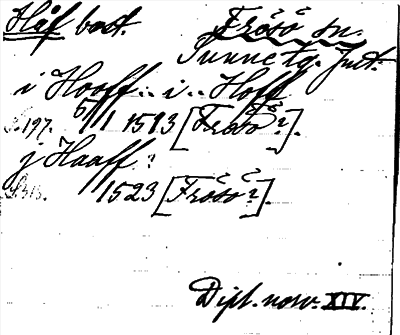 Håf bost. Frösö sn.
Sunne tg. Jmt.
i Hooff .. i .. Hoff
S. 197. 5/1 1513 [Frösö?].
j Haaff ?
S. 313. 1523 [Frösö?].
Dipl. norv. XIV.